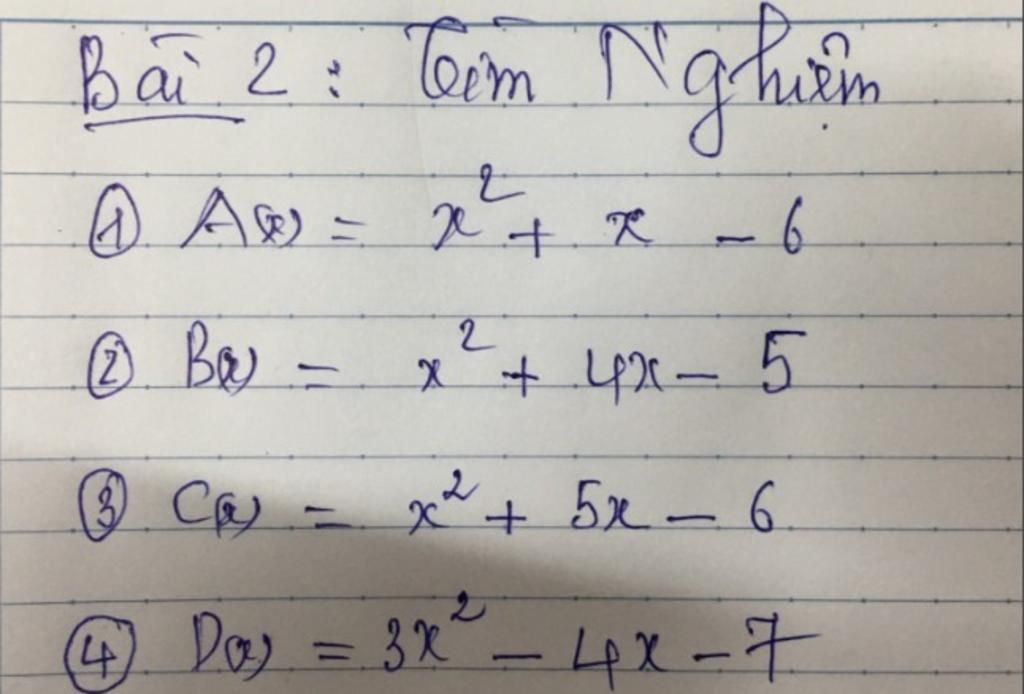 Bài 2: Tìm Nghiệm
① A(x) = x² + x - 6
② B(x) = x² + 4x - 5
③ C(x) = x² + 5x - 6
④ D(x) = 3x² - 4x - 7